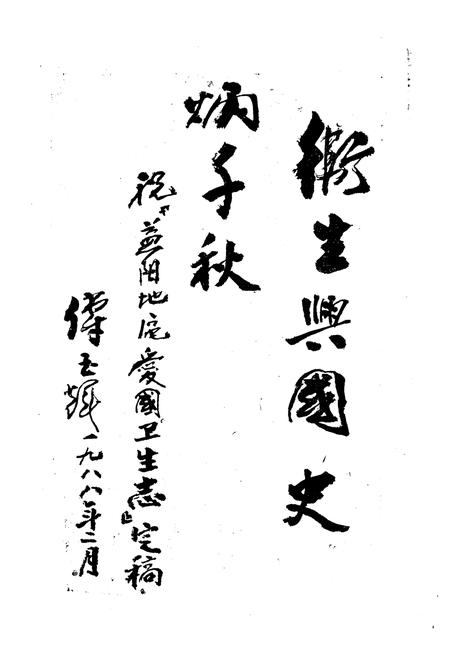 衛生興國史
炳千秋
祝『益阳地區愛國卫生志』完稿
玉輝一九八八年二月